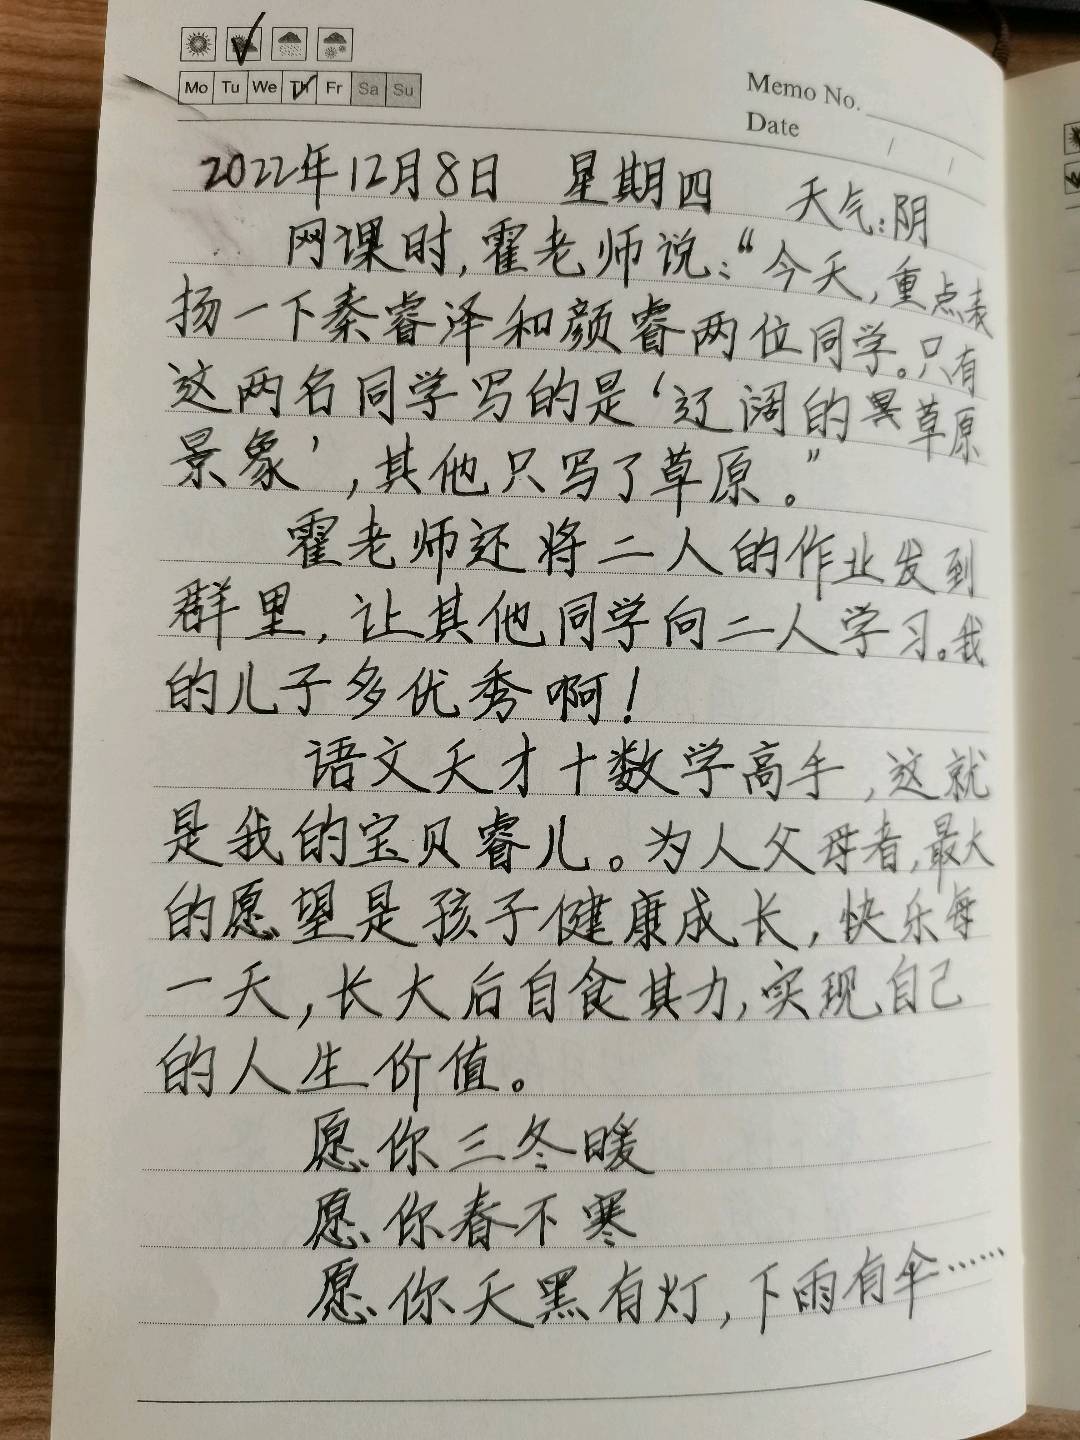 Mo Tu We Th Fr Sa Su
Memo No.
Date
2022年12月8日 星期四 天气:阴
网课时,霍老师说:“今天,重点表
扬一下秦睿泽和颜睿两位同学。只有
这两名同学写的是‘辽阔的草原
景象’,其他只写了草原。”
霍老师还将二人的作业发到
群里,让其他同学向二人学习。我
的儿子多优秀啊!
语文天才十数学高手,这就
是我的宝贝睿儿。为人父母者,最大
的愿望是孩子健康成长,快乐每
一天,长大后自食其力,实现自己
的人生价值。
愿你三冬暖
愿你春不寒
愿你天黑有灯,下雨有伞……